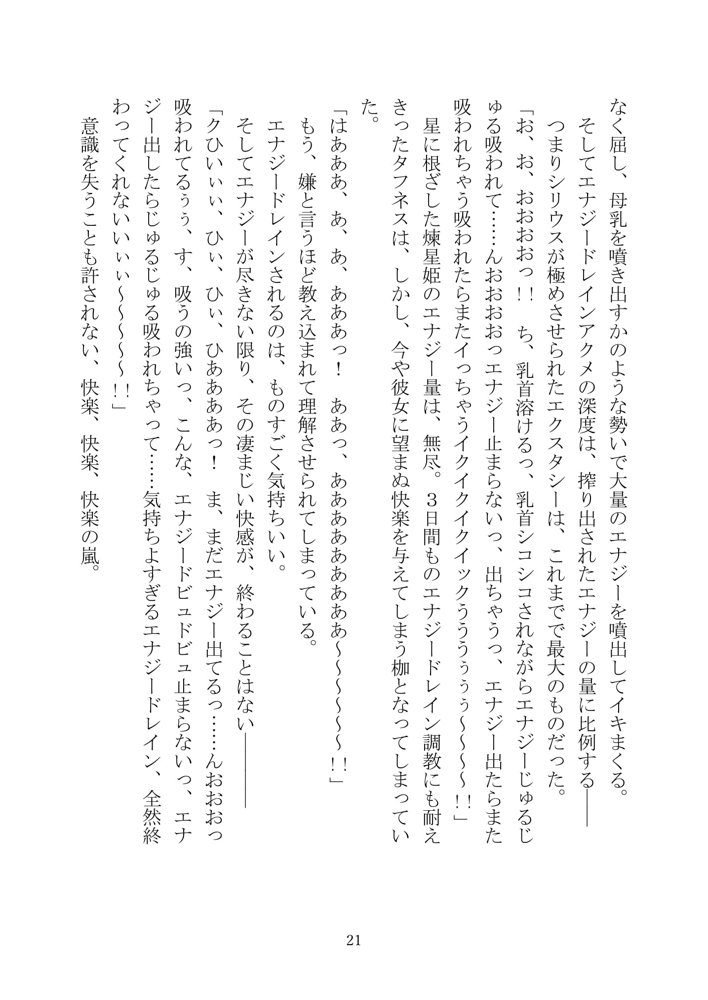 なく屈し、母乳を噴き出すかのような勢いで大量のエナジーを噴出してイキまくる。
そしてエナジードレインアクメの深度は、搾り出されたエナジーの量に比例する――
つまりシリウスが極めさせられたエクスタシーは、これまでで最大のものだった。
「お、お、おおおおっ!!　ち、乳首溶けるっ、乳首シコシコされながらエナジーじゅるじ
ゅる吸われて……んおおおおっエナジー止まらないっ、出ちゃうっ、エナジー出たらまた
吸われちゃう吸われたらまたイっちゃうイクイクイクイックうううぅぅぅ～～～～!!」
星に根ざした煉星姫のエナジー量は、無尽。３日間ものエナジードレイン調教にも耐え
きったタフネスは、しかし、今や彼女に望まぬ快楽を与えてしまう枷となってしまってい
た。
「はあああ、あ、あ、あああっ！　ああっ、ああああああああああ～～～～～～!!」
もう、嫌と言うほど教え込まれて理解させられてしまっている。
エナジードレインされるのは、ものすごく気持ちいい。
そしてエナジーが尽きない限り、その凄まじい快感が、終わることはない――――
「クひいぃぃ、ひぃ、ひぃ、ひああああっ！　ま、まだエナジー出てるっ……んおおおっ
吸われてるぅぅ、す、吸うの強いっ、こんな、エナジードビュドビュ止まらないっ、エナ
ジー出したらじゅるじゅる吸われちゃって……気持ちよすぎるエナジードレイン、全然終
わってくれないいぃぃ～～～～～!!」
意識を失うことも許されない、快楽、快楽、快楽の嵐。
21